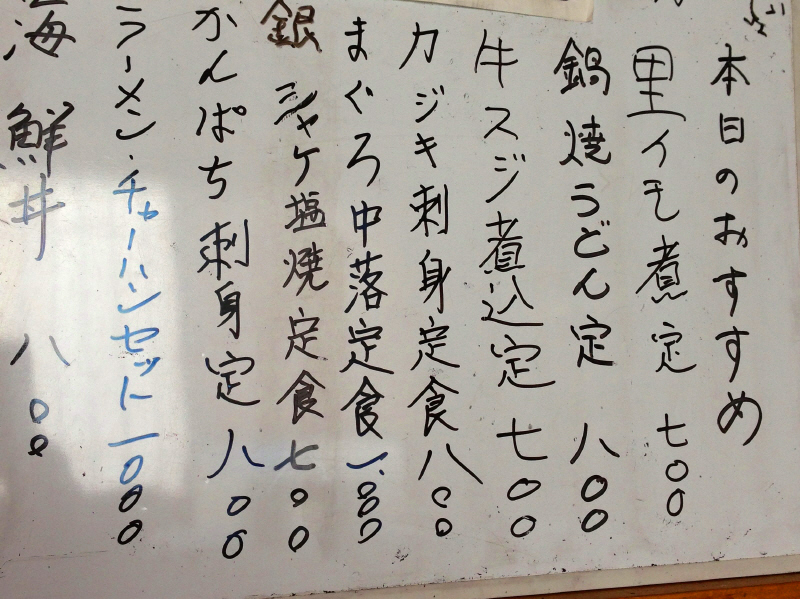 本日のおすすめ
里イモ煮定 七〇〇
鍋焼うどん定 八〇〇
牛スジ煮込定 七〇〇
カジキ刺身定食 八〇〇
まぐろ中落定食 一、〇〇〇
銀シャケ塩焼定食 七〇〇
かんぱち刺身定 八〇〇
ラーメン・チャーハンセット 一〇〇〇
海鮮丼 八〇〇